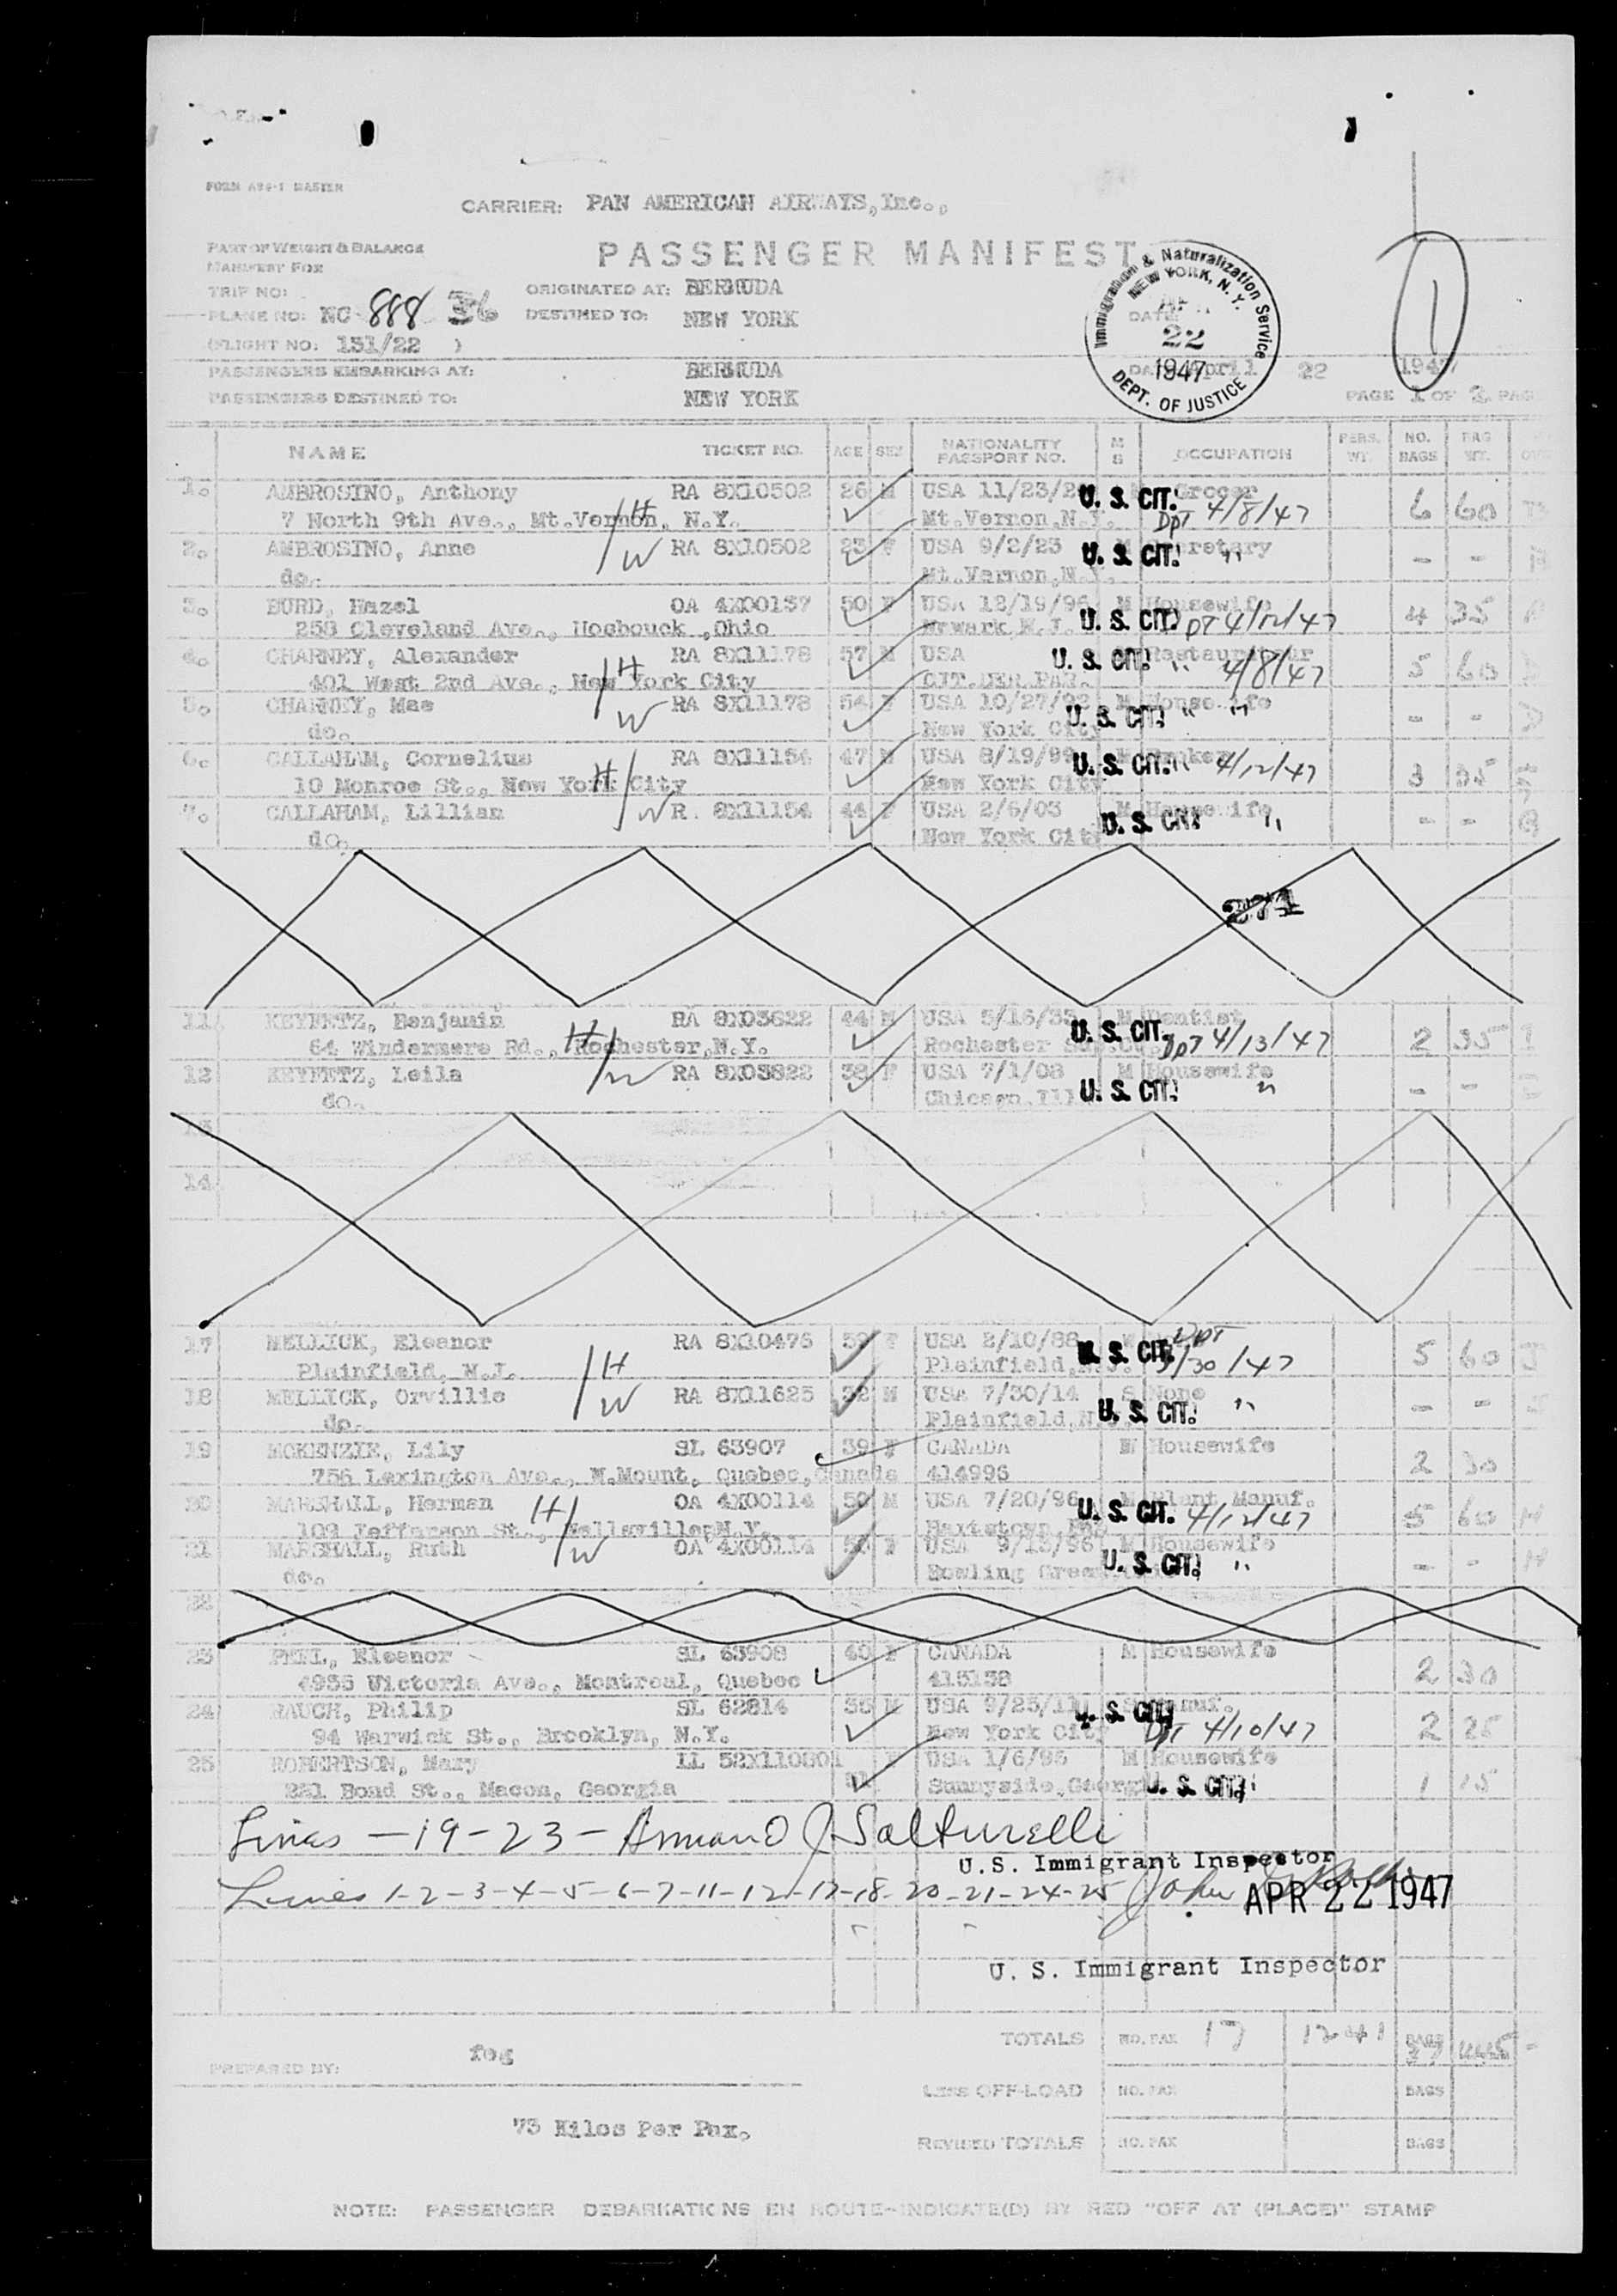 FORM A96-1 MASTER
CARRIER: PAN AMERICAN AIRWAYS,Inc.,
PART OF WEIGHT & BALANCE
MANIFEST FOR
PASSENGER MANIFEST
TRIP NO:
ORIGINATED AT: BERMUDA
PLANE NO: NC 888 36
DESTINED TO: NEW YORK
(FLIGHT NO: 151/22 )
Immigration & Naturalization Service
NEW YORK, N. Y.
DATE
22
1947
DEPT. OF JUSTICE
1
PASSENGERS EMBARKING AT: BERMUDA
April 22 1947
PASSENGERS DESTINED TO: NEW YORK
PAGE 1 OF 2
NAME TICKET NO. AGE SEX NATIONALITY PASSPORT NO. M S OCCUPATION PERS. WT. NO. BAGS BAG WT.
1. AMBROSINO, Anthony RA 8X10502 26 M USA U. S. CIT. Grocer 6 60
7 North 9th Ave., Mt.Vernon, N.Y. H Mt.Vernon,N.Y. DPT 4/8/47
2. AMBROSINO, Anne W RA 8X10502 23 F USA 9/2/23 M U. S. CIT. Secretary " - -
do. Mt.Vernon,N.Y.
3. BURD, Hazel OA 4X00137 50 F USA 12/19/96 M Housewife 4 35
258 Cleveland Ave., Hosbouck ,Ohio Newark,N.J. U. S. CIT. DPT 4/12/47
4. CHARNEY, Alexander RA 8X11178 57 M USA U. S. CIT. Restaurateur 5 60
401 West 2nd Ave., New York City H CIT.DER.PAR. " 4/8/47
5. CHARNEY, Mae W RA 8X11178 54 F USA 10/27/92 M Housewife - -
do. New York City U. S. CIT. " "
6. CALLAHAM, Cornelius RA 8X11154 47 M USA 8/19/99 U. S. CIT. " 4/12/47 3 35
10 Monroe St., New York City H New York City
7. CALLAHAM, Lillian W R. 8X11154 44 F USA 2/6/03 M Housewife - -
do. New York City U. S. CIT. "
271
11 KEYFETZ, Benjamin RA 8X03822 44 M USA M Dentist 2 35
64 Windermere Rd., Rochester,N.Y. H Rochester U. S. CIT. DPT 4/13/47
12 KEYFETZ, Leila W RA 8X03822 38 F USA 7/1/08 M Housewife - -
do. Chicago,Ill U. S. CIT. "
13
14
17 MELLICK, Eleanor RA 8X10476 59 F USA 2/10/88 DPT 5 60
Plainfield, N.J. H Plainfield, U. S. CIT. 3/30/47
18 MELLICK, Orvillis W RA 8X11625 32 M USA 7/30/14 S None - -
do. Plainfield,N. U. S. CIT. "
19 MCKENZIE, Lily SL 63907 39 F CANADA M Housewife 2 30
756 Lexington Ave., W.Mount, Quebec,Canada 414996
20 MARSHALL, Herman H OA 4X00114 50 M USA 7/20/96 M Plant Manuf. 5 60
109 Jefferson St., Wellsville,N.Y. U. S. CIT. 4/12/47
21 MARSHALL, Ruth W OA 4X00114 50 F USA 9/13/96 M Housewife - -
do. Bowling Green U. S. CIT. "
22
23 PEEL, Eleanor SL 63908 40 F CANADA M Housewife 2 30
4935 Victoria Ave., Montreal, Quebec 415138
24 RAUCH, Philip SL 62814 35 M USA 9/25/11 S Manuf. 2 25
94 Warwick St., Brooklyn, N.Y. New York City U. S. CIT. DPT 4/10/47
25 ROBERTSON, Mary LL 52X110801 F USA 1/6/95 M Housewife 1 15
251 Bond St., Macon, Georgia 51 Sunnyside,Georg U. S. CIT.
Lines - 19 - 23 - Armand J. Salturelli
U.S. Immigrant Inspector
Lines 1-2-3-4-5-6-7-11-12-17-18-20-21-24-25 John
APR 22 1947
U. S. Immigrant Inspector
TOTALS NO. PAX 17 1241 BAGS 37 445
PREPARED BY: fog
LESS OFF-LOAD NO. PAX BAGS
73 Kilos Per Pax.
REVISED TOTALS NO. PAX BAGS
NOTE: PASSENGER DEBARKATIONS EN ROUTE-INDICATE(D) BY RED "OFF AT (PLACE)" STAMP